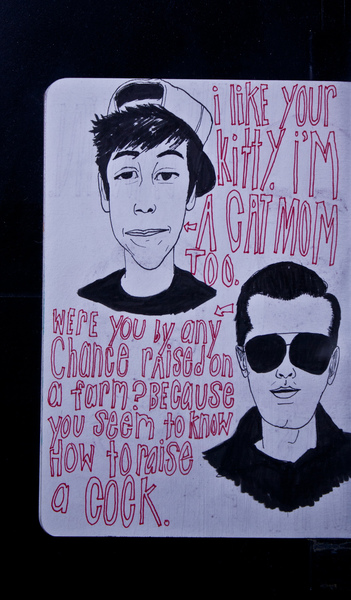 i like YOUR
kitty. i'M
A CAT MOM
TOO.
WERE YOU by any
Chance rAised on
a farm? BECAUSE
you seem to know
HOW to raise
a COCK.